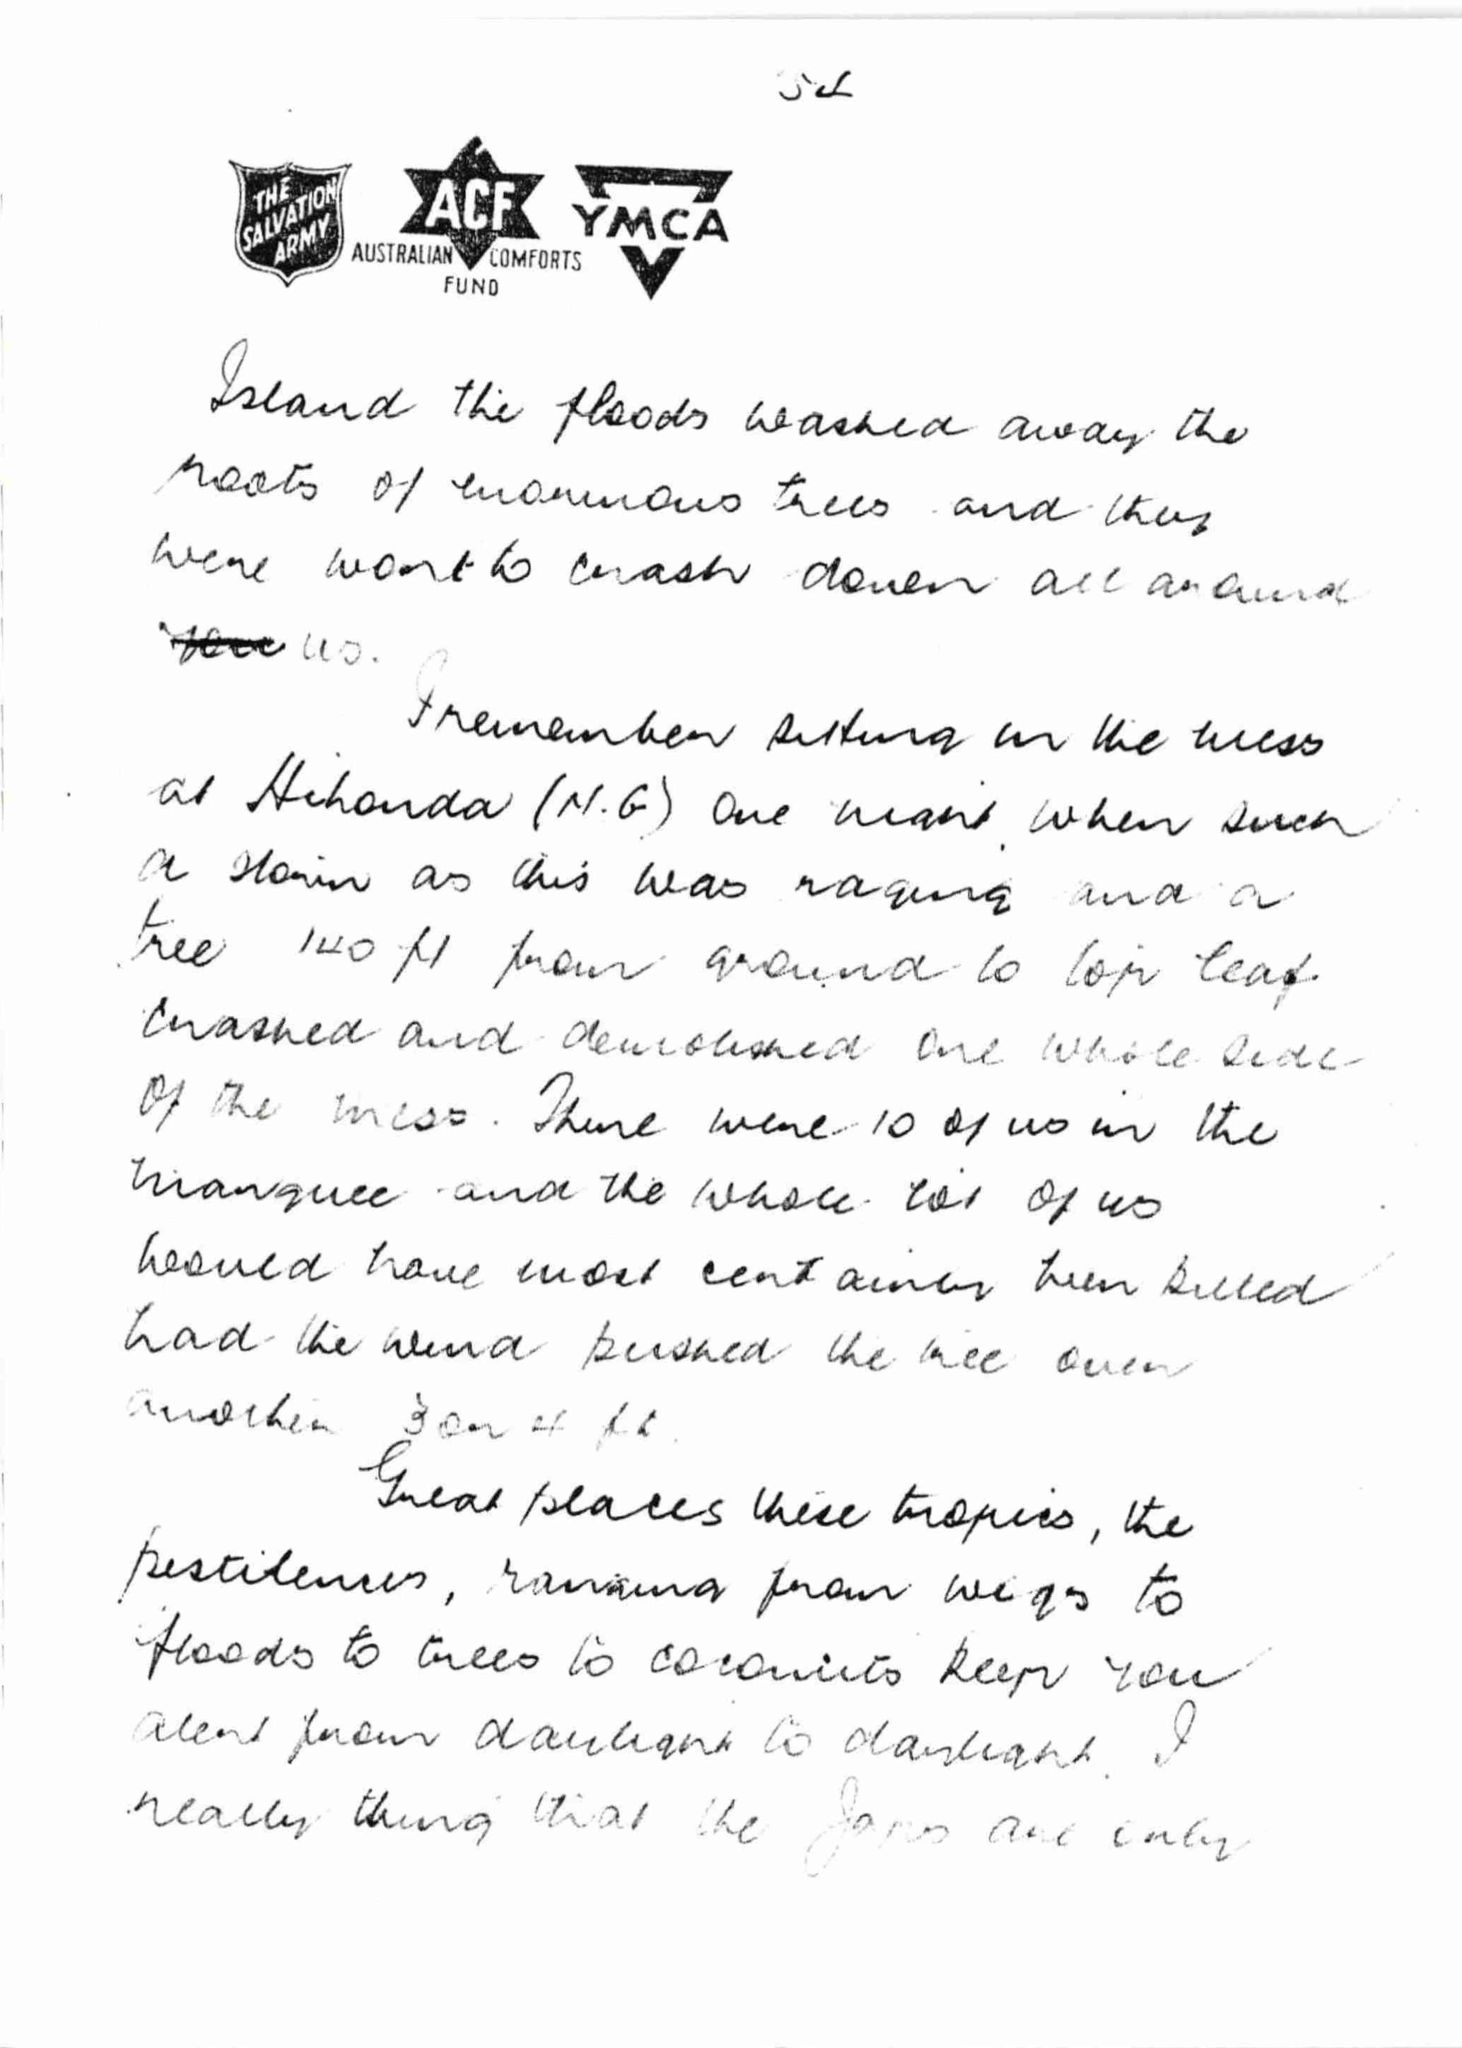 THE
SALVATION
ARMY
ACF
AUSTRALIAN COMFORTS
FUND
YMCA
Island the floods washed away the
roots of enormous trees and they
were wont to crash down all around
you us.
I remember sitting in the mess
at Hihonda (N.G) one night when such
a storm as this was raging and a
tree 140 ft from ground to top leaf
crashed and demolished one whole side
of the mess. There were 10 of us in the
marquee and the whole lot of us
would have most certainly been killed
had the wind pushed the tree over
another 3 or 4 ft.
Great places these tropics, the
pestilences, ranging from wogs to
floods to trees to coconuts keep you
alert from daylight to daylight. I
really thing that the Japs are only